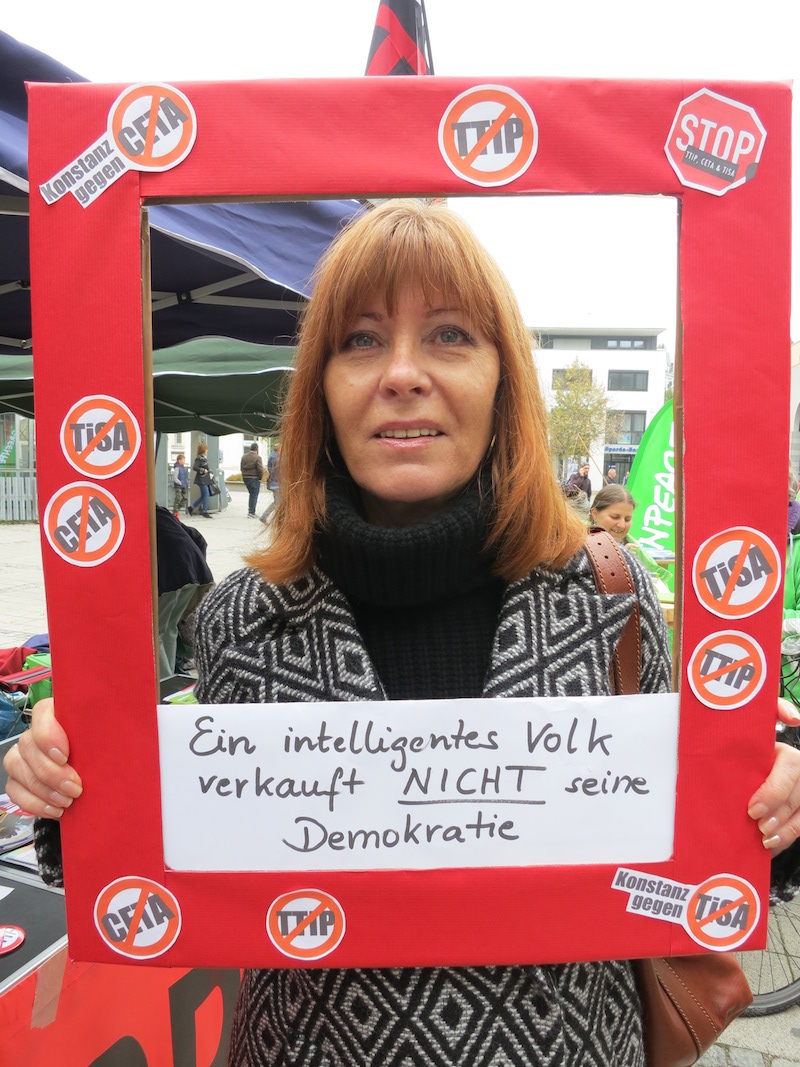 Konstanz
gegen
CETA
TTIP
STOP
TTIP, CETA & TiSA
TiSA
CETA
TiSA
TTIP
Ein intelligentes Volk
verkauft NICHT seine
Demokratie
CETA
TTIP
Konstanz
gegen
TiSA